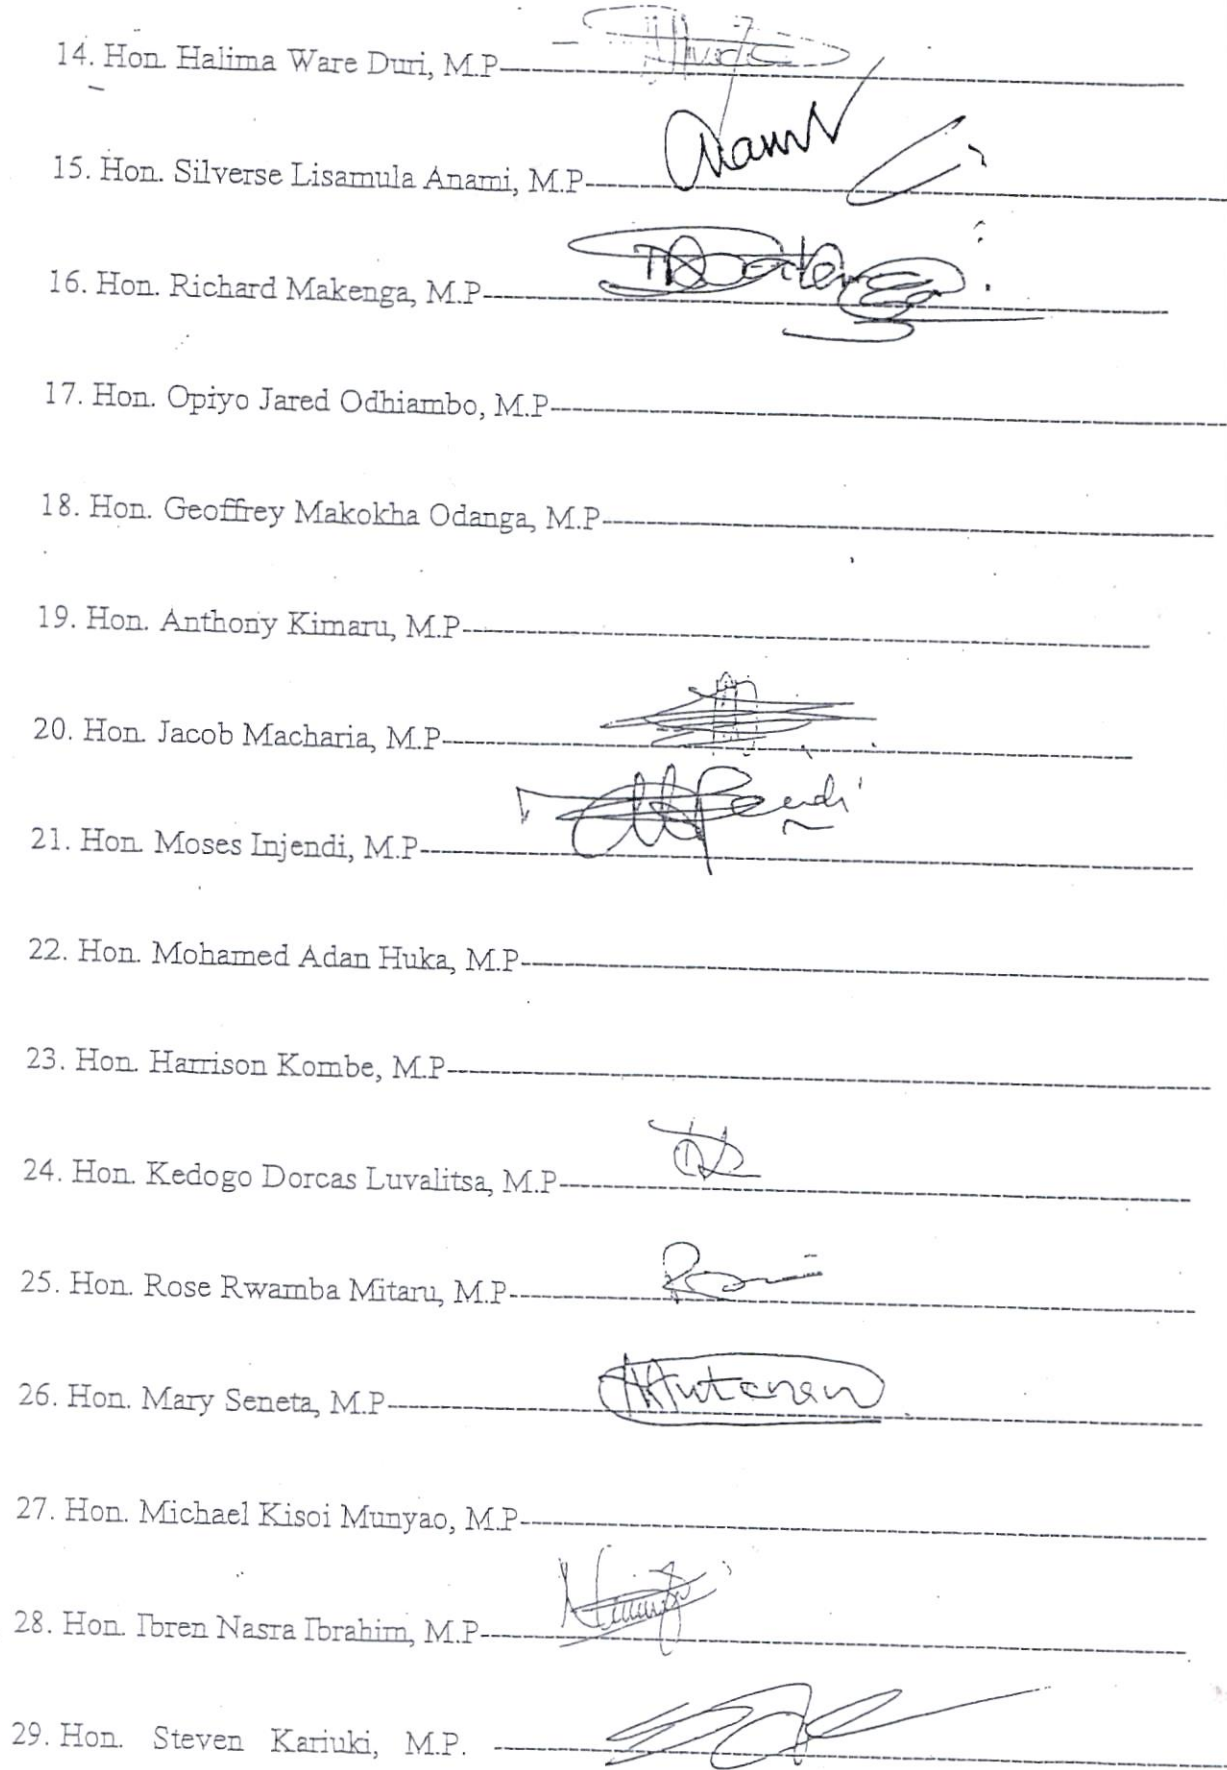 14. Hon. Halima Ware Duri, M.P
15. Hon. Silverse Lisamula Anami, M.P
16. Hon. Richard Makenga, M.P
17. Hon. Opiyo Jared Odhiambo, M.P
18. Hon. Geoffrey Makokha Odanga, M.P
19. Hon. Anthony Kimaru, M.P
20. Hon. Jacob Macharia, M.P
21. Hon. Moses Injendi, M.P
22. Hon. Mohamed Adan Huka, M.P
23. Hon. Harrison Kombe, M.P
24. Hon. Kedogo Dorcas Luvalitsa, M.P
25. Hon. Rose Rwamba Mitaru, M.P
26. Hon. Mary Seneta, M.P
27. Hon. Michael Kisoi Munyao, M.P
28. Hon. Ibren Nasra Ibrahim, M.P
29. Hon. Steven Kariuki, M.P.